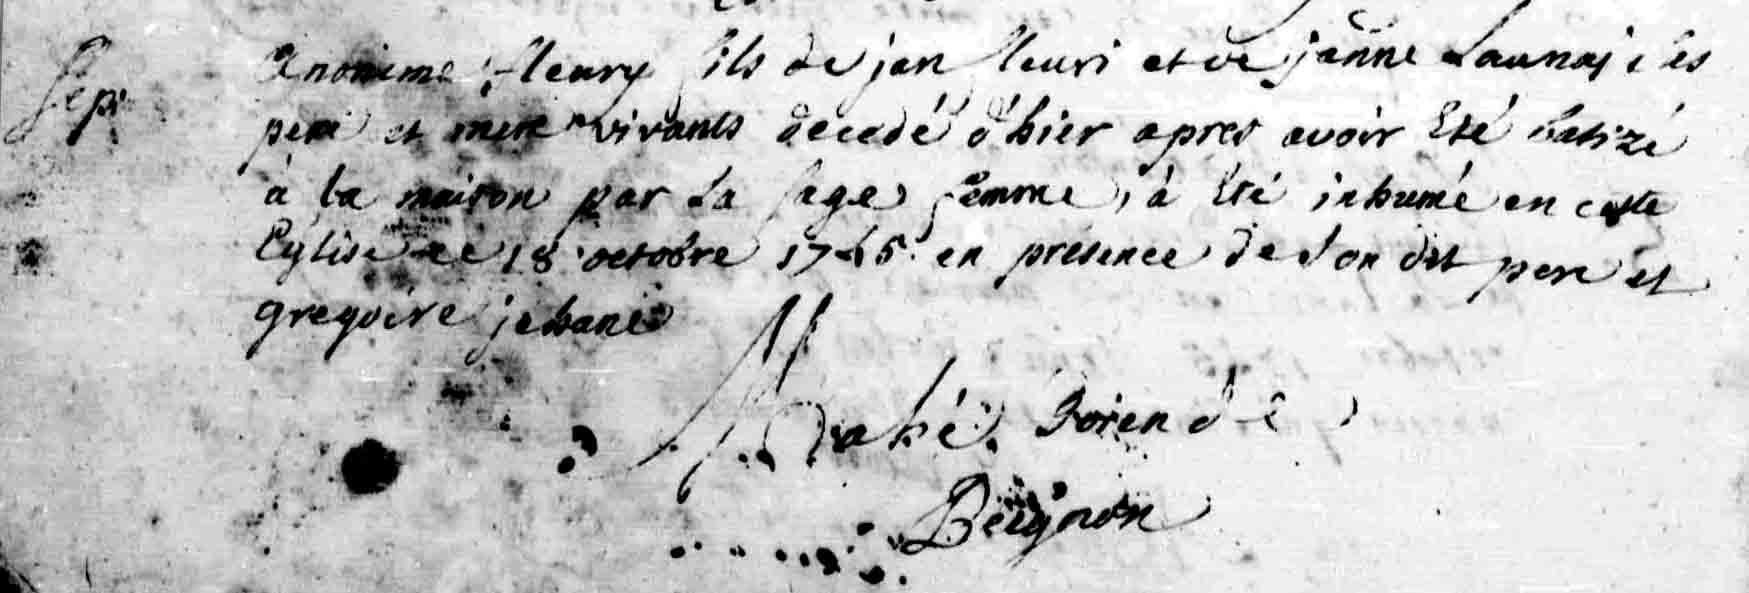 Sep.
Anonime fleury fils de jan fleuri et de janne Launaj ses
pere et mere vivants decedé d'hier apres avoir Eté batizé
à la maison par La sage femme, à Eté inhumé en cette
Eglise ce 18 octobre 1745 en presence de son dit pere et
gregoire jehane
Mahé de
Beignon